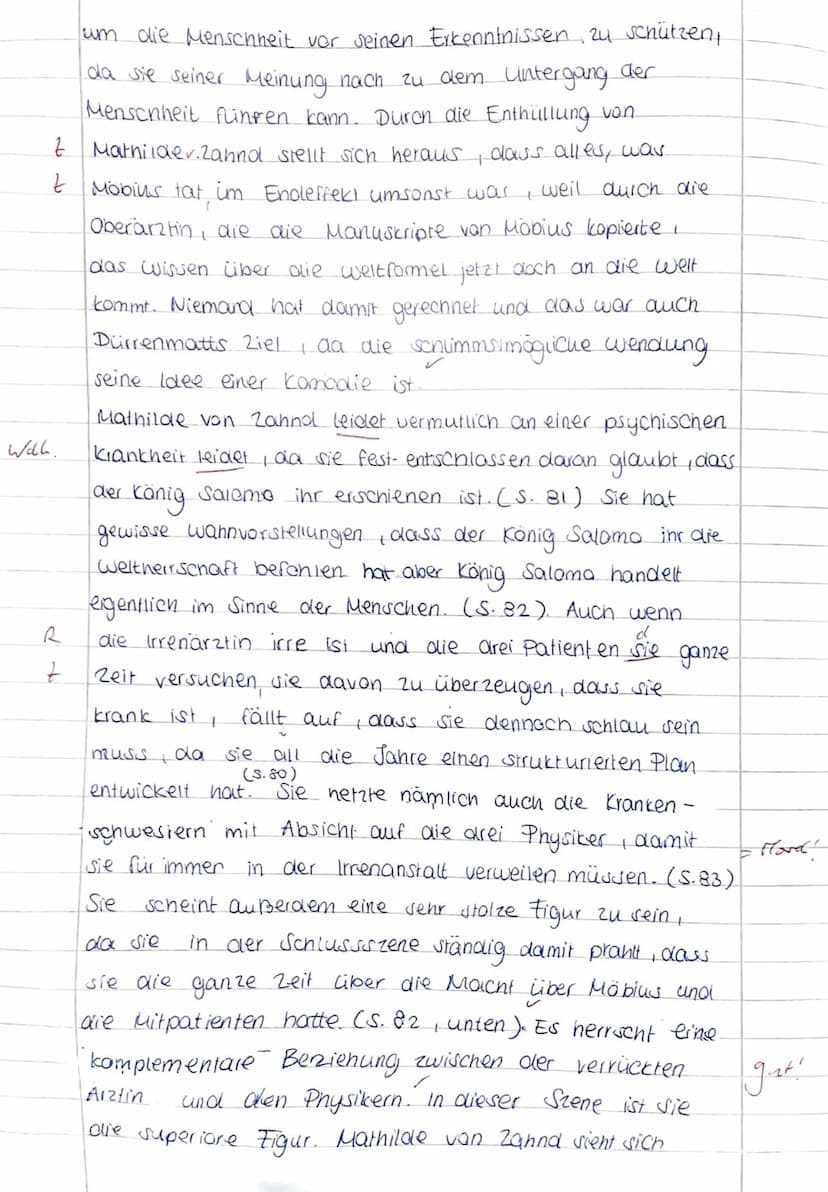 um die Menschheit vor seinen Erkenntnissen zu schützen,
da sie seiner Meinung nach zu dem Untergang der
Menschheit führen kann. Durch die Enthüllung von
Mathilde v. Zahnd stellt sich heraus, dass alles, was
Möbius tat, im Endeffekt umsonst war, weil durch die
Oberärztin, die die Manuskripte von Möbius kopierte,
das Wissen über die Weltformel jetzt doch an die Welt
kommt. Niemand hat damit gerechnet und das war auch
Dürrenmatts Ziel, da die schlimmstmögliche Wendung
seine Idee einer Komödie ist.
Mathilde von Zahnd leidet vermutlich an einer psychischen
Wdh. Krankheit leidet, da sie fest entschlossen daran glaubt, dass
der König Salomo ihr erschienen ist. (S. 81) Sie hat
gewisse Wahnvorstellungen, dass der König Salomo ihr die
Weltherrschaft befohlen hat aber König Salomo handelt
eigentlich im Sinne der Menschen. (S. 82). Auch wenn
R die Irrenärztin irre ist und die drei Patienten sie d ganze
Zeit versuchen, sie davon zu überzeugen, dass sie
krank ist, fällt auf, dass sie dennoch schlau sein
muss, da sie all die Jahre einen strukturierten Plan
(S. 80)
entwickelt hat. Sie hetzte nämlich auch die Kranken-
schwestern mit Absicht auf die drei Physiker, damit
= Mord!
sie für immer in der Irrenanstalt verweilen müssen. (S. 83)
Sie scheint außerdem eine sehr stolze Figur zu sein,
da sie in der Schlussszene ständig damit prahlt, dass
sie die ganze Zeit über die Macht über Möbius und
die Mitpatienten hatte. (S. 82, unten). Es herrscht eine
komplementare Beziehung zwischen der verrückten gut!
Ärztin und den Physikern. In dieser Szene ist sie
die superiore Figur. Mathilde von Zahnd sieht sich